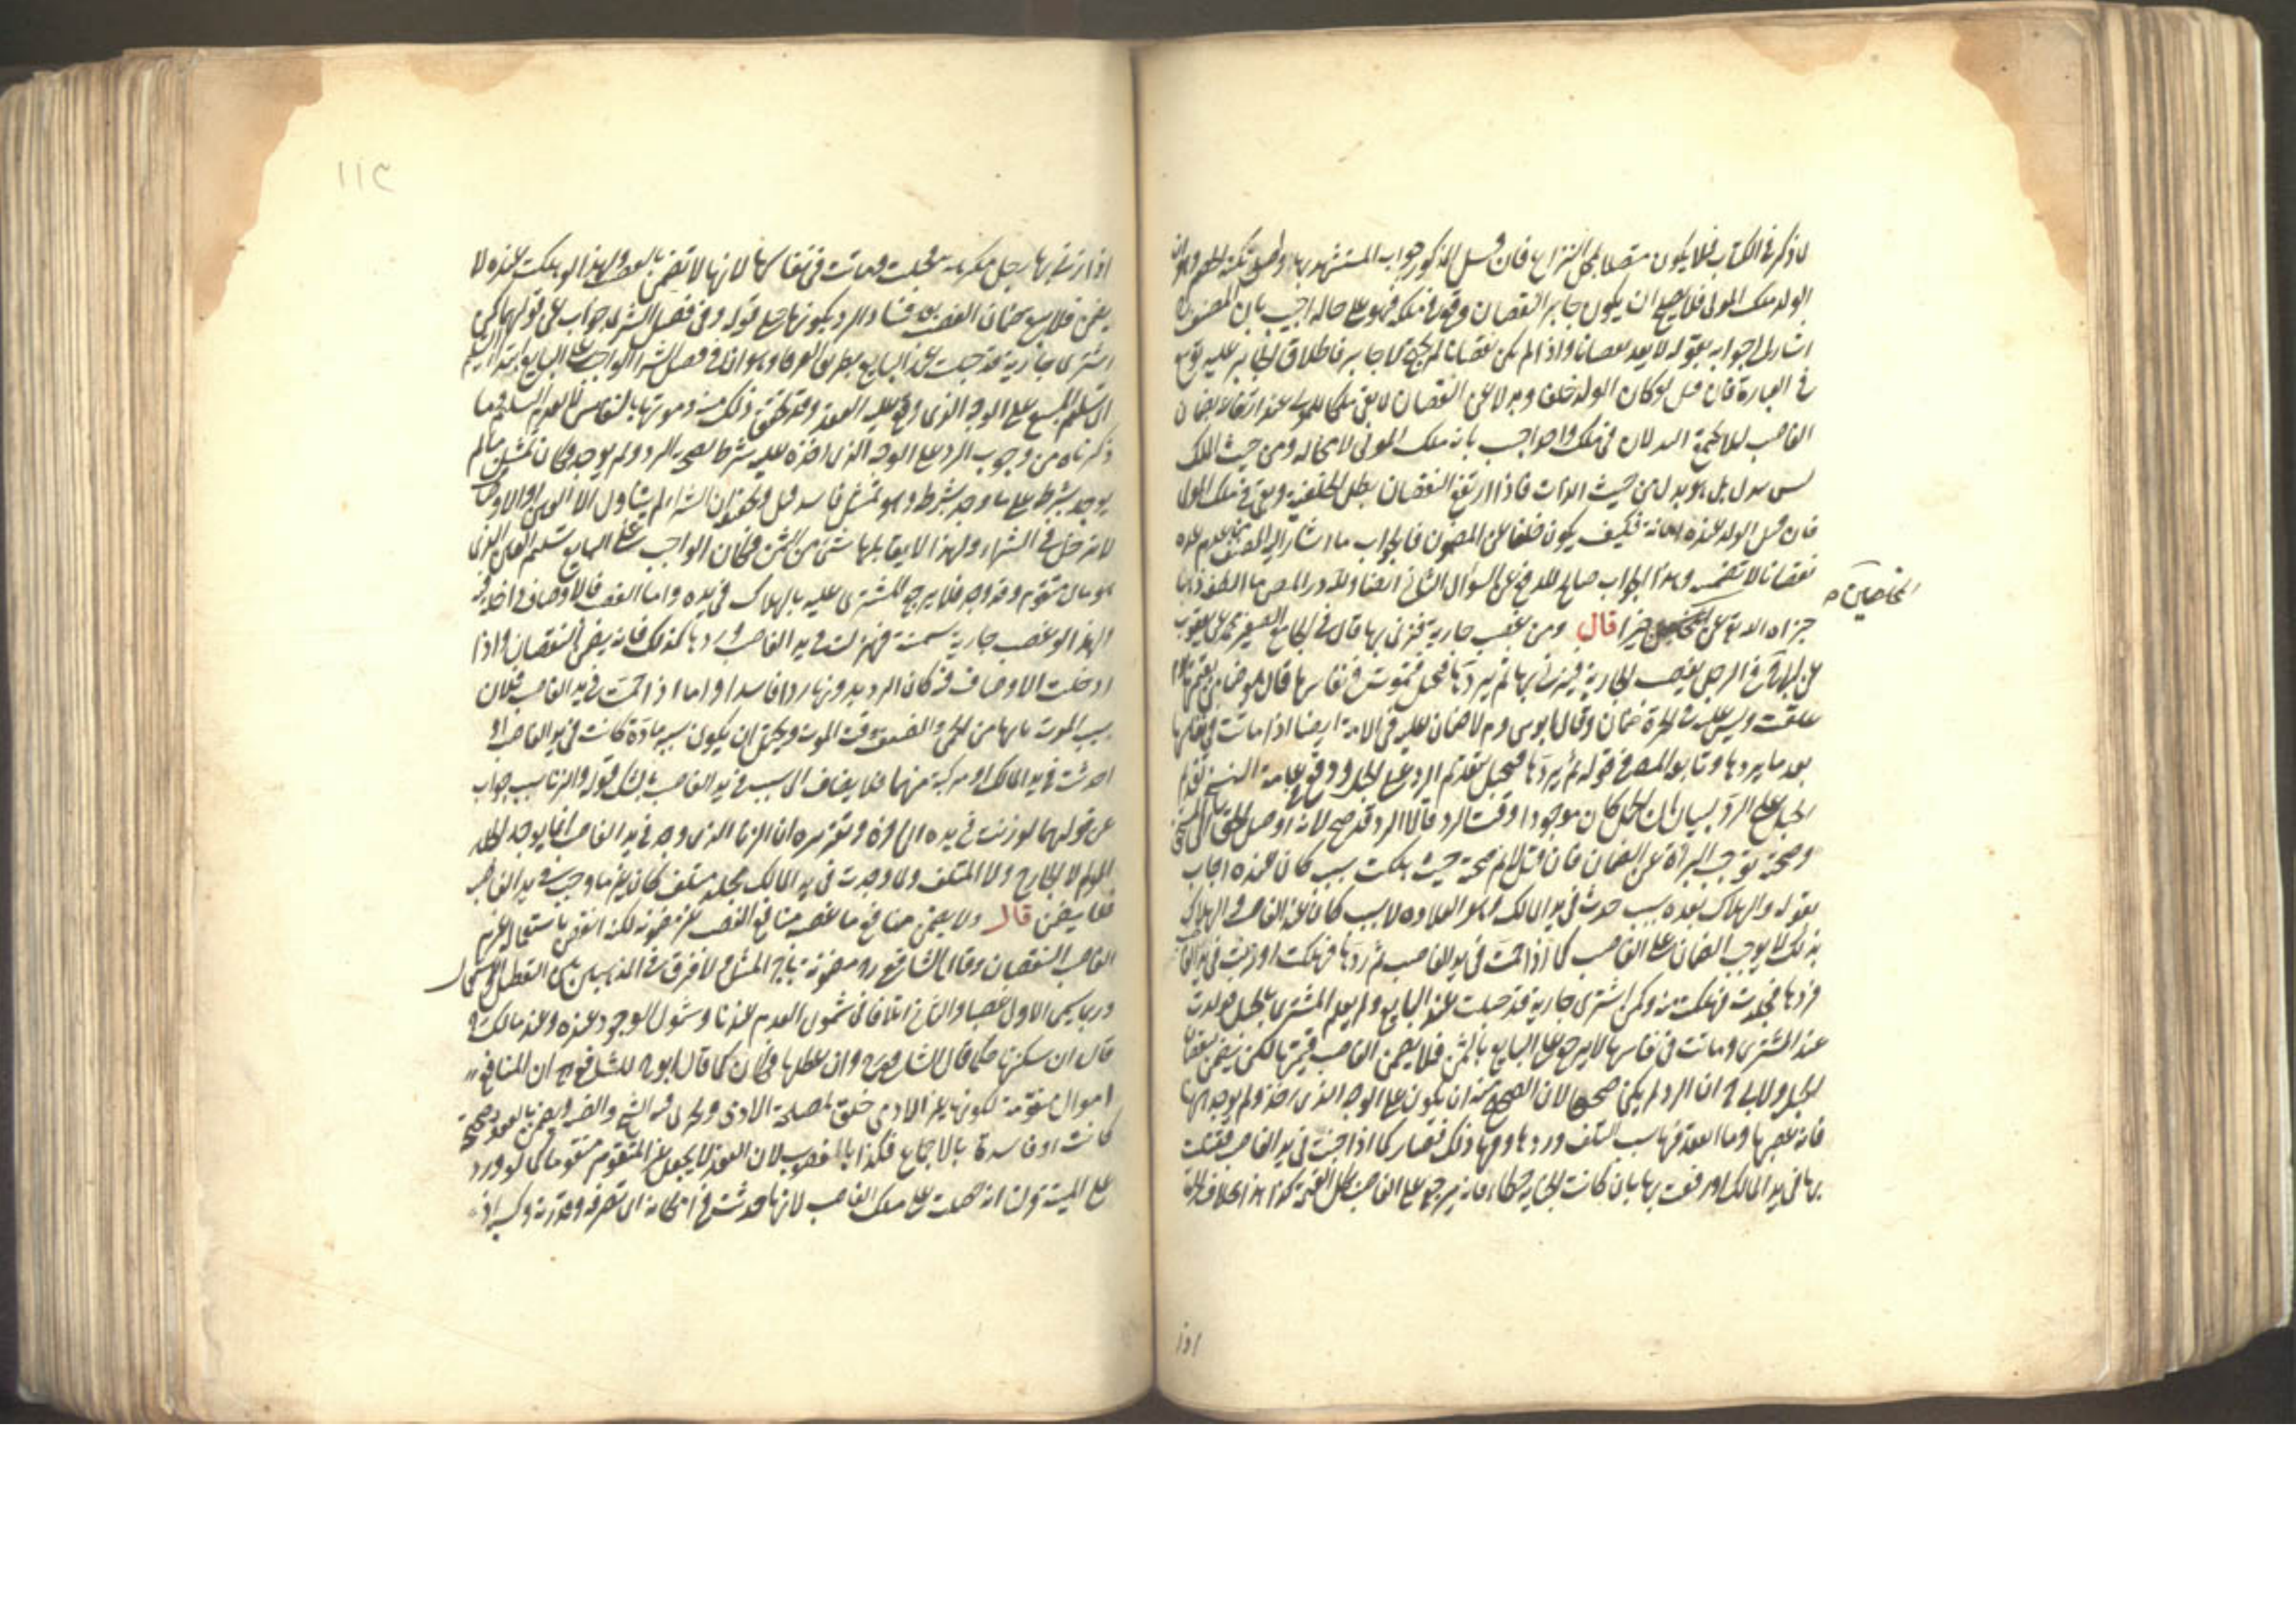 لما ذكر في الكتاب فلا يكون متصلا بمحل النزاع فان قيل المذكور جواب المستشهد بها
الولد ملك المولى فلا يصلح ان يكون جابرا لنقصان وقع في ملكه فهو على حاله اجيب بان المصنف
اشار الى جوابه بقوله لا يعد نقصانا واذا لم يكن نقصانا لم يحتج الى جابر فاطلاق الجابر عليه توسع
في العبارة فان قيل لو كان الولد خلفا وبدلا عن النقصان لما بقي ملكا للمولى عند ارتفاع ضمان
الغاصب لئلا يجتمع البدلان في ملك واحد اجيب بانه ملك المولى لا محالة ومن حيث الملك
ليس ببدل بل هو بدل من حيث الذات فاذا ارتفع النقصان بطل الخلفية وبقي في ملك المولى
فان قيل الولد عنده امانة فكيف يكون خلفا عن المضمون فالجواب ما اشار اليه المصنف
نقصانا لا تضمنه وهذا الجواب صالح للدفع عن السؤال الثاني ايضا ولله در المص ما الطف ذهنا
المحاصلين
جزاه الله تعالى عن خيرا قال ومن غصب جارية فزنى بها قال في الجامع الصغير محمد عن يعقوب
عن ابي حنيفة في الرجل يغصب الجارية فيزني بها ثم يردها فتحبل فتموت في نفاسها قال هو ضامن لقيمتها يوم
علقت وليس عليه في الحرة ضمان وقال ابو يوسف وم لا ضمان عليه في الامة ايضا اذا ماتت في نفاسها
بعد ما يردها وتابع المص في قوله ثم يردها فتحبل بتقديم الرد على الحبل ووقع في عامة النسخ تقديم
الحبل على الرد لبيان ان الحبل كان موجودا وقت الرد قالا الرد قد صح لانه اوصل الحق الى المستحق
وصحته توجب البراءة عن الضمان فان قيل لا نم صحته حيث هلكت بسبب كان عنده اجاب
بقوله والهلاك بعده بسبب حدث في يد المالك وهو الولادة لا بسبب كان عند الغاصب والهلاك
بذلك لا يوجب الضمان على الغاصب كما اذا حمت في يد الغاصب ثم ردها فهلكت او زنت في يد الغاصب
فردها فجلدت فهلكت منه وكمن اشترى جارية قد حبلت عند البايع ولم يعلم المشتري بالحبل فولدت
عند المشتري وماتت في نفاسها لا يرجع على البايع بالثمن فلا يضمن الغاصب قيمتها لكن يضمن نقصان
الحبل ولابي ح ان الرد لم يكن صحيحا لان الصحيح منه ان يكون على الوجه الذي اخذ ولم يوجد
فانه غصبها وما انعقد فيها سبب التلف وردها وفيها ذلك فصار كما اذا جنت في يد الغاصب فقتلت
بها في يد المالك او دفعت بها بان كانت الجناية خطاء فانه يرجع على الغاصب بكل القيمة كذا هذا بخلاف الحرة
اذا
١١٢
اذا زنى بها رجل مكرهة فحبلت وماتت في نفاسها لانها لا تضمن بالغصب ولهذا لو هلكت عنده لا
يضمن فلا يبقى ضمان الغصب بعد فساد الرد بكونها حبلى قوله وفي فصل الشرى جواب عن قولهما كمن
اشترى جارية قد حبلت عند البايع بطريق الفرق وهو ان في فصل الشرا الواجب على البايع ابتداء التسليم
اي تسليم المبيع على الوجه الذي وقع عليه العقد وقد تحقق ذلك منه وموتها بالنفاس لا يعدم التسليم وما
ذكرناه من وجوب الرد على الوجه الذي اخذه عليه شرط لصحة الرد ولم يوجد فكان تمثيل ما لم
يوجد شرطه على ما وجد شرطه وهو تمثيل فاسد قيل وتحقيقه ان الشراء لم يتناول الا العين والاوصاف
لا تدخل في الشراء ولهذا لا يقابلها شيء من الثمن فكان الواجب على البايع تسليم العين الذي
هو مال متقوم وقد وجد فلا يرجع المشتري عليه بالهلاك في يده واما الغصب فالاوصاف داخلة فيه
ولهذا لو غصب جارية سمينة فهزلت في يد الغاصب وردها كذلك فانه يضمن النقصان واذا
دخلت الاوصاف فيه كان الرد بدونها ردا فاسدا واما اذا حمت في يد الغاصب فلان
سبب الموت ما بها من الحمى والضعف وقت الموت ويحتمل ان يكون سببه مادة كانت في يد الغاصب او
احدثت في يد المالك او مركبة منهما فلا يضاف الى السبب في يد الغاصب بالشك قوله والزنا سبب جواب
عن قولهما لو زنت في يده الى اخره وتقريره ان الزنا الذي وجد في يد الغاصب انما يوجب الجلد
المولم لا الجارح ولا المتلف ولما وجدت في يد المالك بجلد متلف كان غير ما وجب في يد الغاصب
فلا يضمن قال ولا يضمن منافع ما غصبه منافع الغصب غير مضمونة لكن ان نقص باستعماله غرم
الغاصب النقصان وقال الشافعي رح مضمونة باجر المثل ولا فرق في المذهبين بين التعطيل والاستعمال
وربما يسمى الاول غصبا والثاني اتلافا في شمول العدم عندنا وشمول الوجود عنده وعند مالك رح
قال ان سكنها فكما قال الشافعي وان عطلها فكان كما قال ابو ح للشافعي رح ان المنافع
اموال متقومة لكونها غير الادمي خلق لمصلحة الادمي ويجري فيه الشح والضنة ويضمن بالعقد صحيحة
كانت او فاسدة بالاجماع فكذا بالغصوب لان العقد لا يجعل غير المتقوم متقوما كما لو ورد
على الميتة ولنا انه حصلت على ملك الغاصب لانها حدثت في امكانه اي تصرفه وقدرته وكسبه اذ